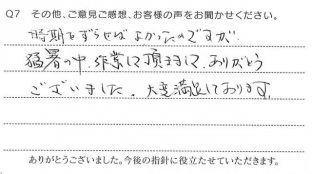 Q7 その他、ご意見ご感想、お客様の声をお聞かせください。
時期をずらせばよかったのですが、
猛暑の中、作業して頂きまして、ありがとう
ございました。大変満足しております。
ありがとうございました。今後の指針に役立たせていただきます。